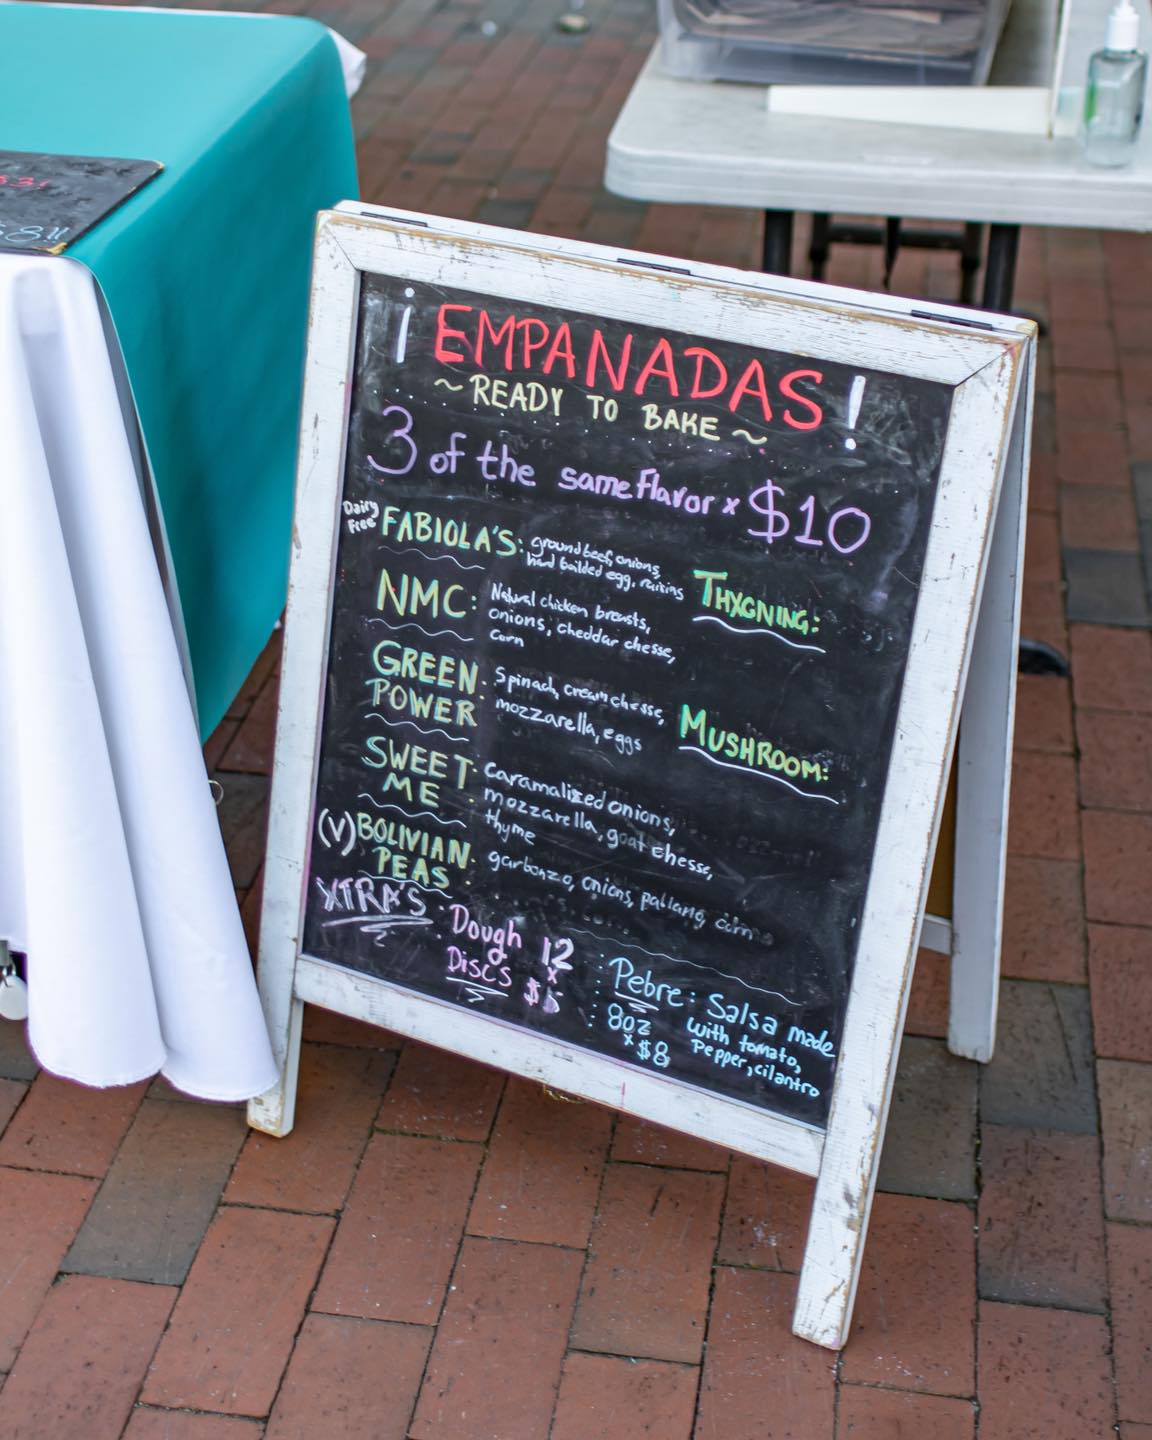 ¡EMPANADAS!
~READY TO BAKE~
3 of the same flavor x $10
Dairy Free
FABIOLA'S: ground beef, onions,
hard boilded egg, raisins
NMC: Natural chicken breasts,
onions, cheddar chesse,
corn
GREEN POWER: Spinach, cream chesse,
mozzarella, eggs
SWEET ME: caramalized onions,
mozzarella, goat chesse,
thyme
(V) BOLIVIAN PEAS: garbonzo, onions,
THXGNING:
MUSHROOM:
XTRA'S: Dough 12
Discs x
Pebre: Salsa made
with tomato,
Pepper, cilantro
8oz
x $8